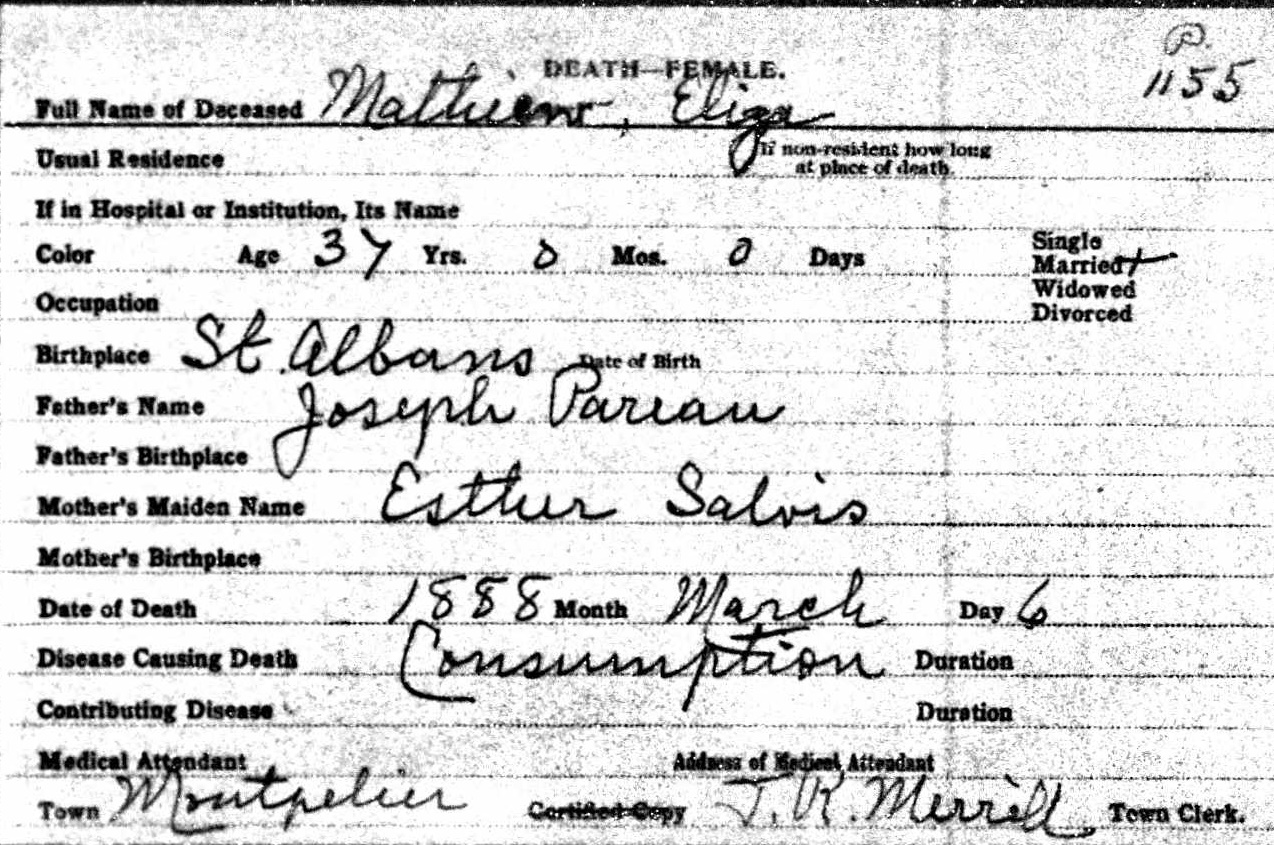 P.
1155
DEATH—FEMALE.
Full Name of Deceased Mathieu, Eliza
Usual Residence If non-resident how long at place of death
If in Hospital or Institution, Its Name
Color Age 37 Yrs. 0 Mos. 0 Days
Single
Married
Widowed
Divorced
Occupation
Birthplace St. Albans Date of Birth
Father's Name Joseph Pareau
Father's Birthplace
Mother's Maiden Name Esther Salvis
Mother's Birthplace
Date of Death 1888 Month March Day 6
Disease Causing Death Consumption Duration
Contributing Disease Duration
Medical Attendant Address of Medical Attendant
Town Montpelier Certified Copy T. R. Merrill Town Clerk.